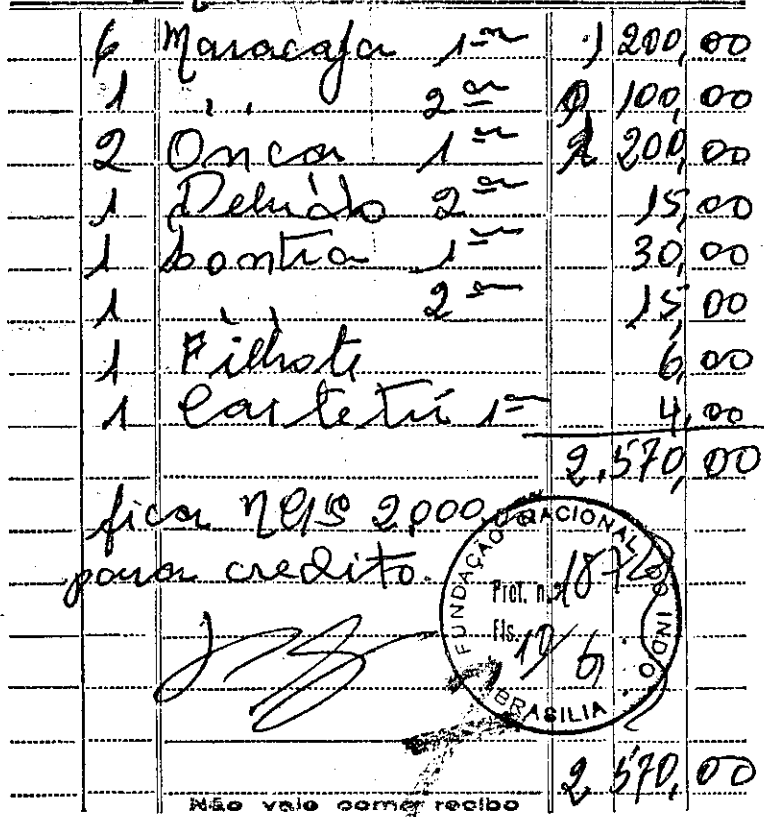 6 Maracaja 1ª 1 200,00
1 " 2ª 100,00
2 Onca 1ª 1 200,00
1 2ª 15,00
1 Lontra 1ª 30,00
1 " 2ª 15,00
1 Filhote 6,00
1 Cartetú 1ª 4,00
2.570,00
fica NCr$ 2,000,00
para credito.
FUNDAÇÃO NACIONAL DO INDIO
Prot. n.º
Fls.
BRASILIA
2 570,00
Não vale como recibo